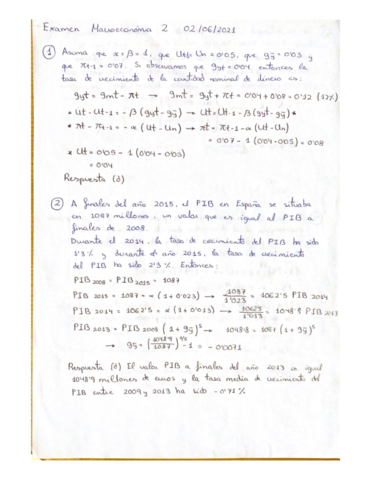 Examen Macroeconomía 2 02/06/2021
① Asuma que α = β = 1, que Ut-1 = Un = 0'05, que gȳ = 0'03 y
que πt-1 = 0'07. Si observamos que gyt = 0'04 entonces la
tasa de crecimiento de la cantidad nominal de dinero es:
gyt = gmt - πt → gmt = gyt + πt = 0'04 + 0'08 = 0'12 (12%)
* Ut - Ut-1 = - β (gyt - gȳ) → Ut = Ut-1 - β (gyt - gȳ) *
* πt - πt-1 = - α (Ut - Un) → πt = πt-1 - α (Ut - Un)
= 0'07 - 1 (0'04 - 005) = 0'08
* Ut = 0'05 - 1 (0'04 - 0'03)
= 0'04
Respuesta (d)
② A finales del año 2015, el PIB en España se situaba
en 1087 millones, un valor que es igual al PIB a
finales de 2008.
Durante el 2014, la tasa de crecimiento del PIB ha sido
1'3% y durante el año 2015, la tasa de crecimiento
del PIB ha sido 2'3%. Entonces:
PIB 2008 = PIB 2015 = 1087
PIB 2015 = 1087 = x (1 + 0'023) → 1087/1'023 = 1062'5 PIB 2014
PIB 2014 = 1062'5 = x (1 + 0'013) → 1062'5/1'013 = 1048'9 PIB 2013
PIB 2013 = PIB 2008 (1 + gȳ)⁵ → 1048'8 = 1087 (1 + gȳ)⁵
→ gȳ = (1048'9/1087)^1/5 - 1 = - 0'0071
Respuesta (d) El valor PIB a finales del año 2013 es igual
1048'9 millones de euros y la tasa media de crecimiento del
PIB entre 2009 y 2013 ha sido - 0'71%